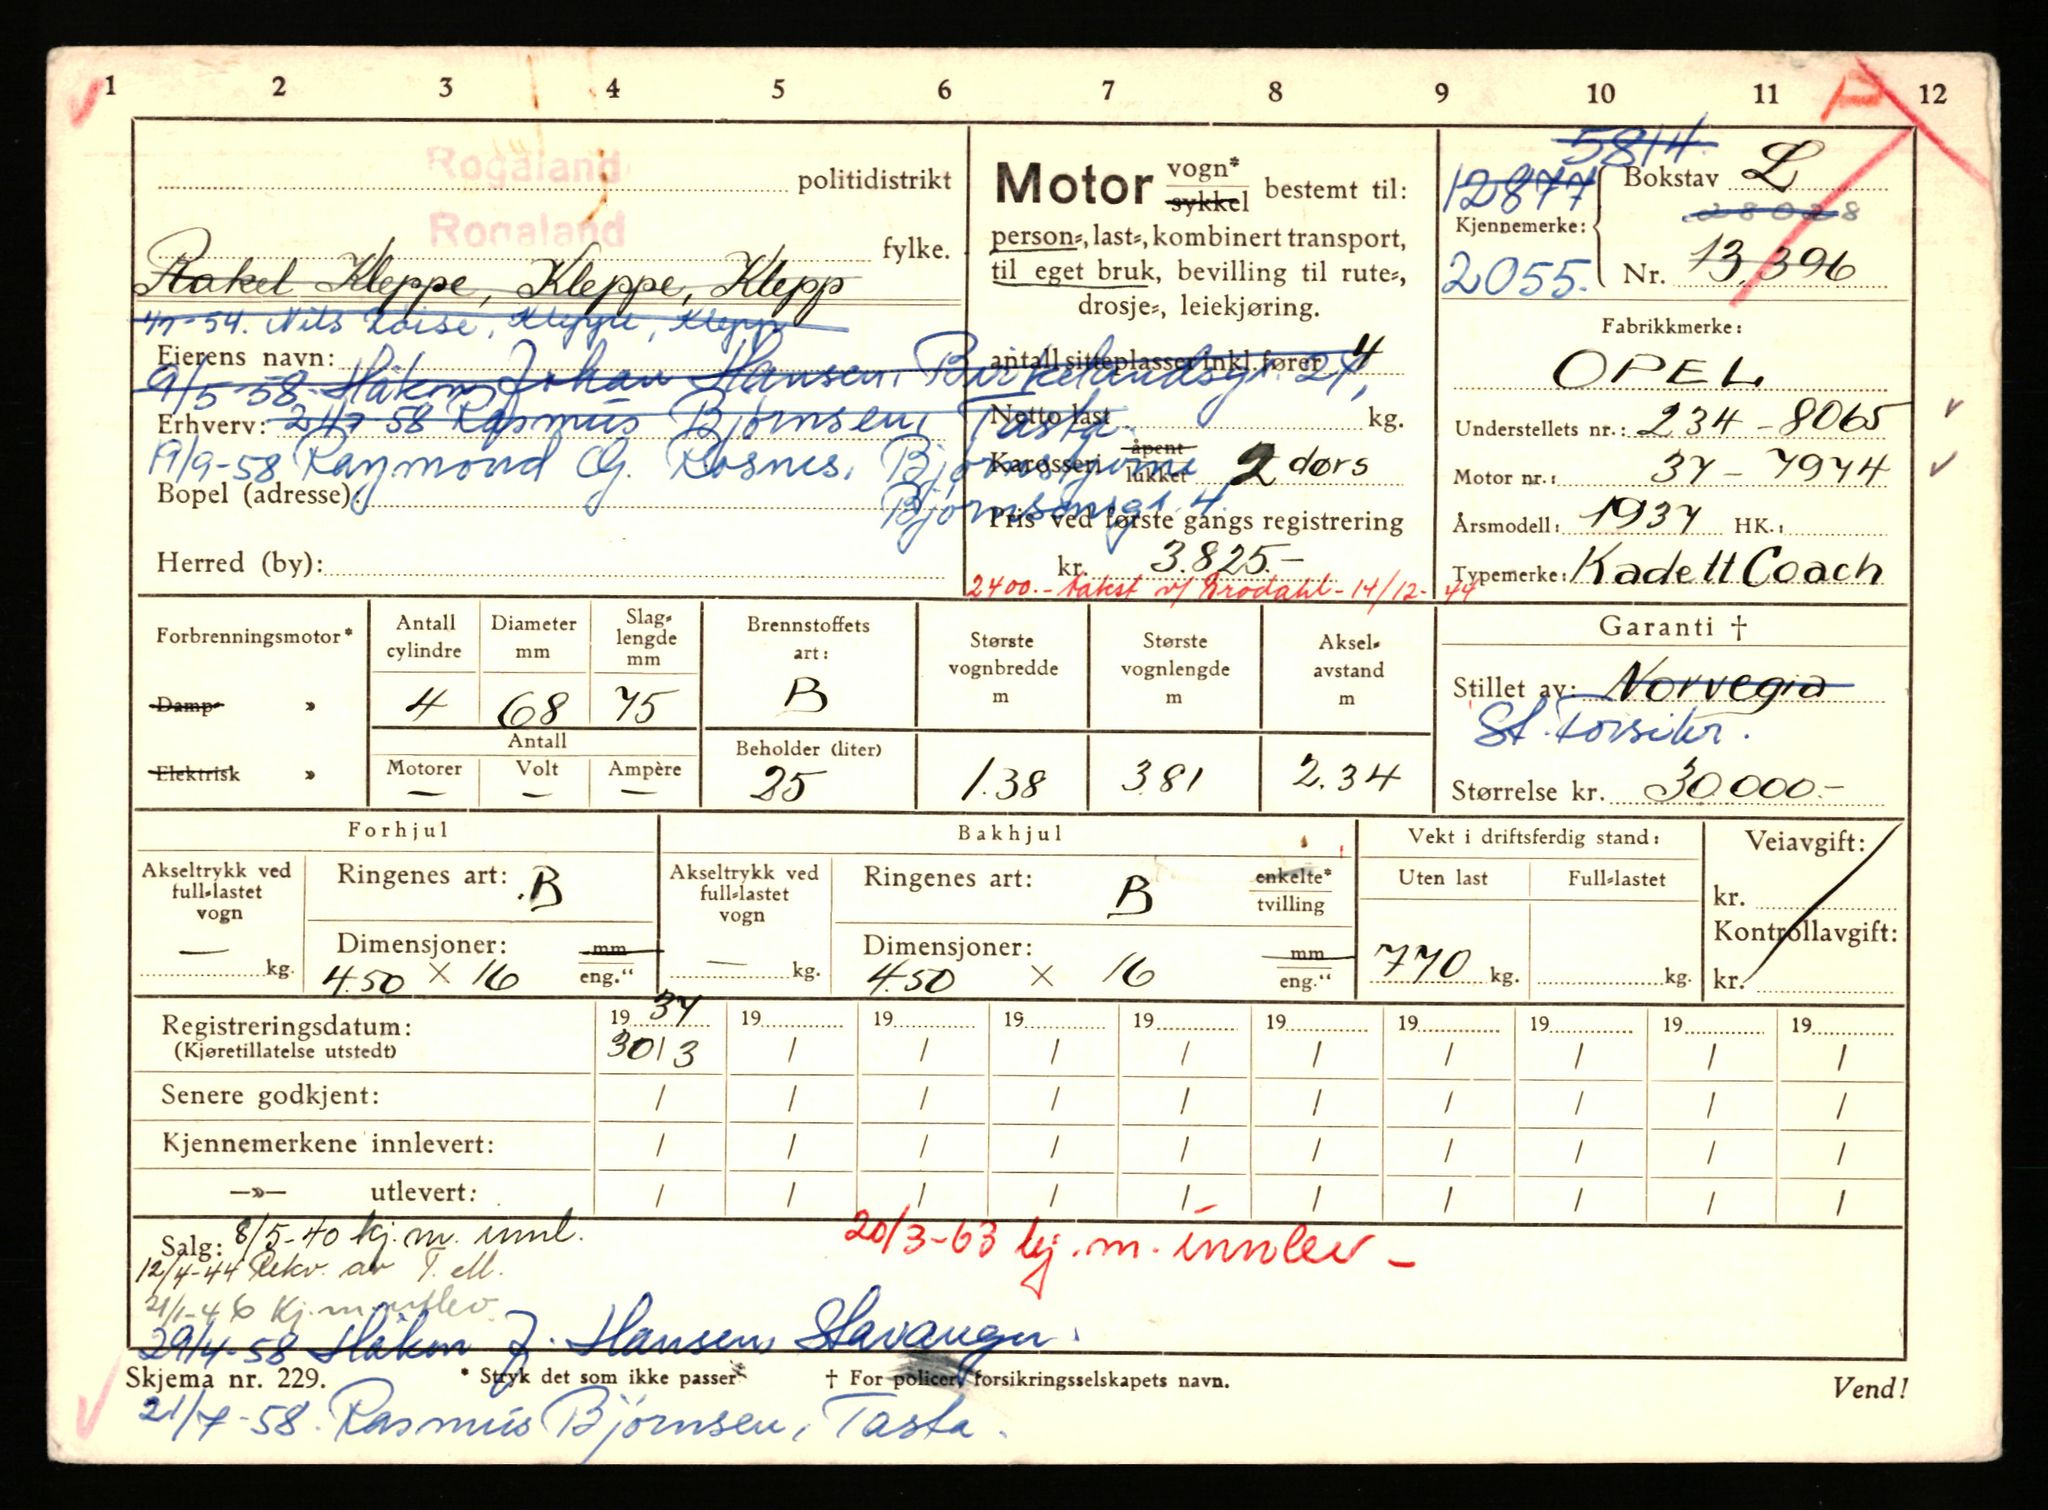 1 2 3 4 5 6 7 8 9 10 11 12
Rogaland politidistrikt
Rogaland fylke.
Rakel Kleppe, Kleppe, Klepp
Eierens navn:
9/5-58. Håkon Johan Hansen, Birkelandsgt. 27,
Erhverv: 21/7-58 Rasmus Bjørnsen, Tasta.
19/9-58 Raymond G. Rosnes,
Bopel (adresse): Bjørnsonsgt. 4.
Herred (by):
Motor vogn* sykkel bestemt til:
person-, last-, kombinert transport,
til eget bruk, bevilling til rute-,
drosje-, leiekjøring.
antall sitteplasser inkl. fører 4
Netto last kg.
Karosseri åpent lukket 2 dørs
Pris ved første gangs registrering
kr. 3.825.-
2400.- takst v/ Brodahl - 14/12-44
5814.
12877 Bokstav L
28028
Kjennemerke:
2055. Nr. 13,396
Fabrikkmerke:
OPEL
Understellets nr.: 234-8065
Motor nr.: 37-7974
Årsmodell: 1937 HK.:
Typemerke: Kadett Coach
Forbrenningsmotor*
Damp- »
Elektrisk »
Antall cylindre 4
Diameter mm 68
Slag-lengde mm 75
Antall
Motorer — Volt — Ampère —
Brennstoffets art: B
Beholder (liter) 25
Største vognbredde m 1.38
Største vognlengde m 3.81
Aksel-avstand m 2.34
Garanti †
Stillet av: Norvegia
St. Forsikr.
Størrelse kr. 30000.-
Forhjul
Akseltrykk ved full-lastet vogn — kg.
Ringenes art: B
Dimensjoner: mm
4.50 × 16 eng."
Bakhjul
Akseltrykk ved full-lastet vogn — kg.
Ringenes art: B enkelte* tvilling
Dimensjoner: mm
4.50 × 16 eng."
Vekt i driftsferdig stand:
Uten last 770 kg.
Full-lastet kg.
Veiavgift:
kr.
Kontrollavgift:
kr.
Registreringsdatum: 19 37 19 19 19 19 19 19 19 19 19
(Kjøretillatelse utstedt) 30/3 / / / / / / / / /
Senere godkjent: / / / / / / / / / /
Kjennemerkene innlevert: / / / / / / / / / /
—»— utlevert: / / / / / / / / / /
Salg: 8/5-40 kj.m. innl. 20/3-63 kj.m. innlev -
12/4-44 Rekv. av T.M.
21/1-46 Kj.m. utlev.
29/4-58 Håkon J. Hansen, Stavanger.
Skjema nr. 229. * Stryk det som ikke passer † For policer, forsikringsselskapets navn. Vend!
21/7-58. Rasmus Bjørnsen, Tasta.